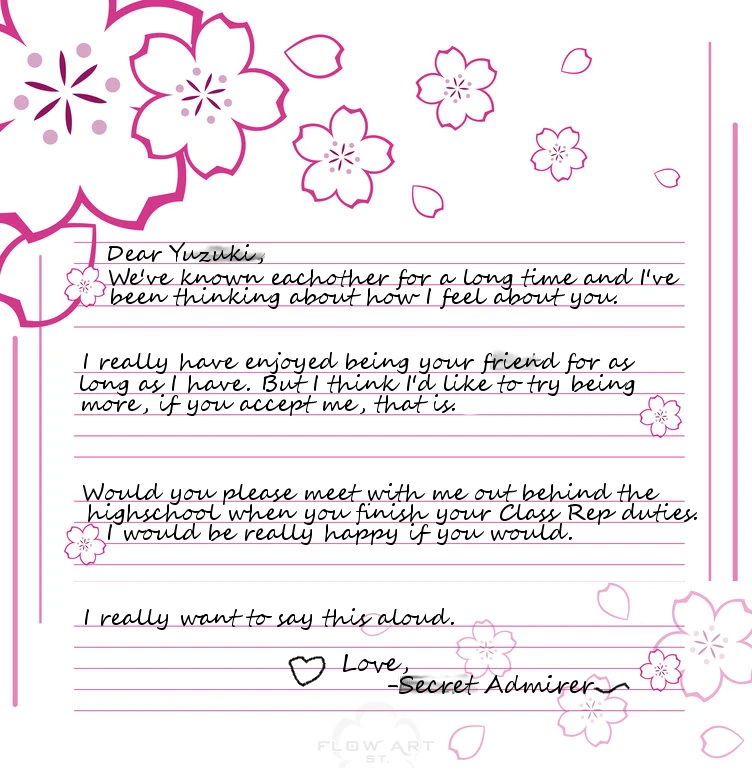 Dear Yuzuki,
We've known eachother for a long time and I've
been thinking about how I feel about you.
I really have enjoyed being your friend for as
long as I have. But I think I'd like to try being
more, if you accept me, that is.
Would you please meet with me out behind the
highschool when you finish your Class Rep duties.
I would be really happy if you would.
I really want to say this aloud.
Love,
-Secret Admirer
FLOW ART
ST.